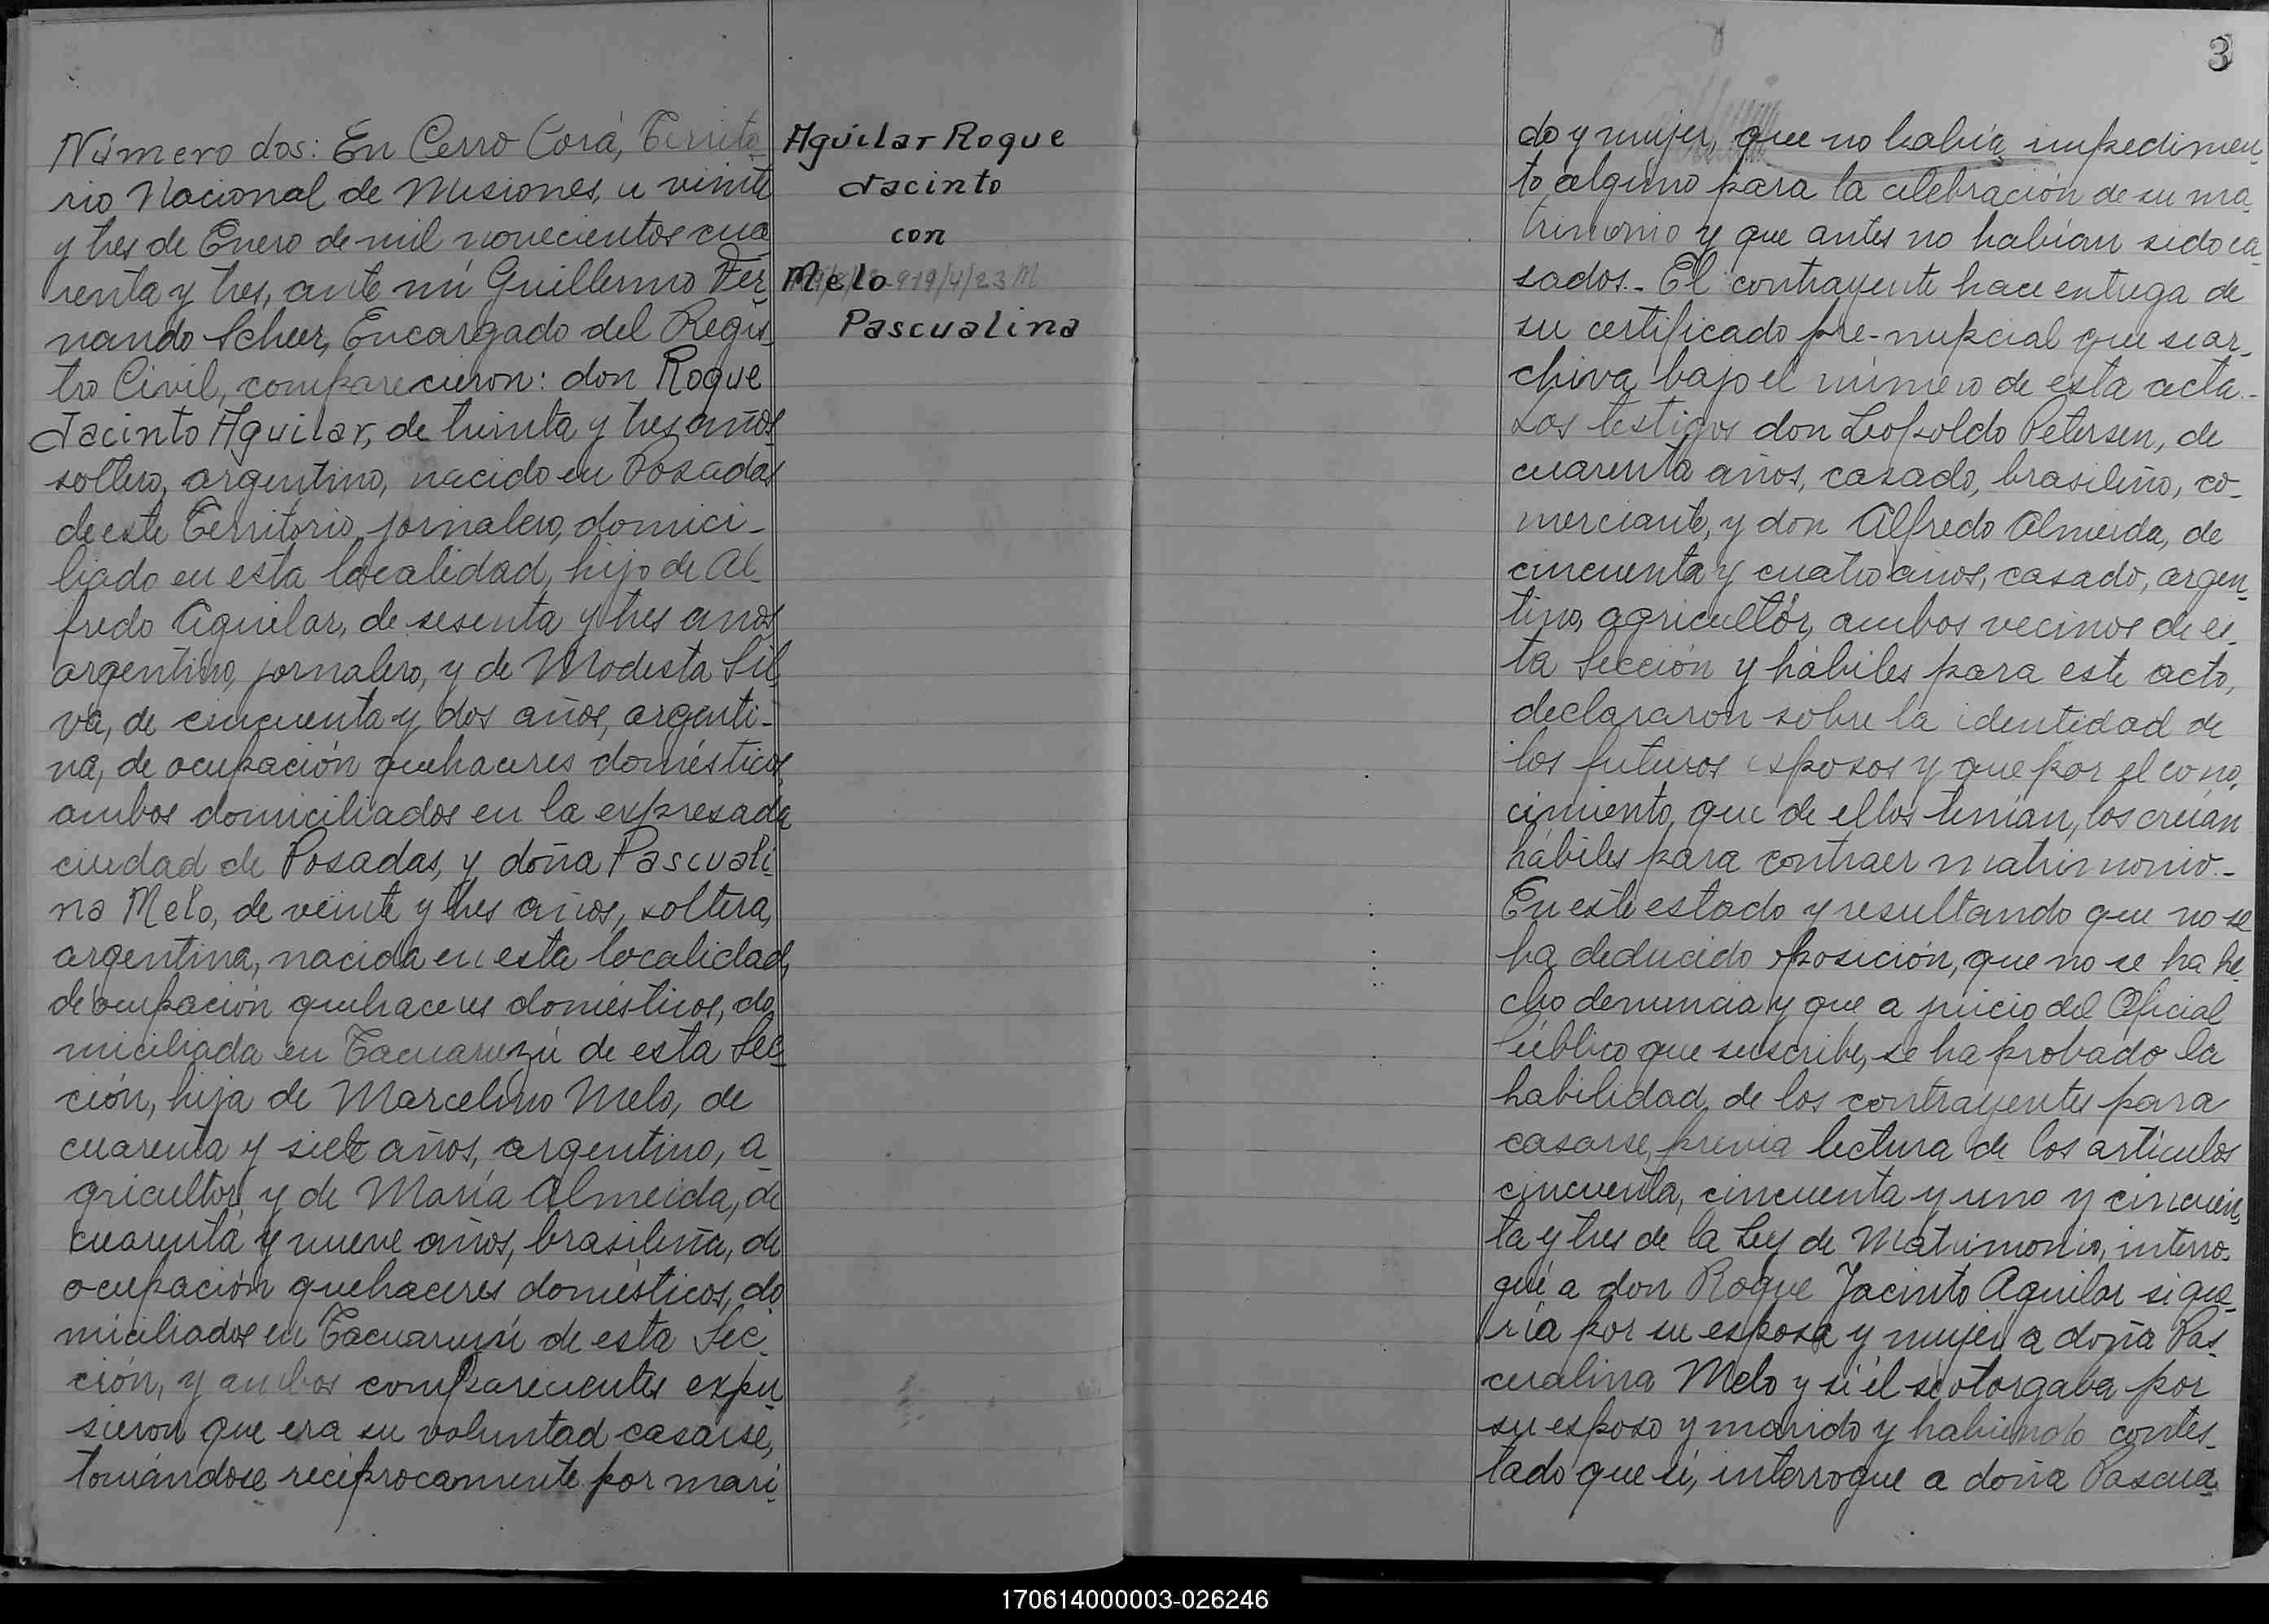 Número dos: En Cerro Corá, Territo-
rio Nacional de Misiones, a veinte
y tres de Enero de mil novecientos cua-
renta y tres, ante mí Guillermo Fer-
nando Scheer, Encargado del Regis-
tro Civil, comparecieron: don Roque
Jacinto Aguilar, de treinta y tres años,
soltero, argentino, nacido en Posadas
de este Territorio, jornalero, domici-
liado en esta localidad, hijo de Al-
fredo Aguilar, de sesenta y tres años
argentino, jornalero, y de Modesta Sil-
va, de cincuenta y dos años, argenti-
na, de ocupación quehaceres domésticos,
ambos domiciliados en la expresada
ciudad de Posadas, y doña Pascuali-
na Melo, de veinte y tres años, soltera,
argentina, nacida en esta localidad,
de ocupación quehaceres domésticos, do-
miciliada en Tacuaruzú de esta Sec-
ción, hija de Marcelino Melo, de
cuarenta y siete años, argentino, a-
gricultor, y de María Almeida, de
cuarenta y nueve años, brasileña, de
ocupación quehaceres domésticos, do-
miciliados en Tacuaruzú de esta Sec-
ción, y ambos comparecientes expu-
sieron que era su voluntad casarse,
tomándose recíprocamente por mari-
Aguilar Roque
Jacinto
con
Melo
Pascualina
3
do y mujer, que no había impedimen-
to alguno para la celebración de su ma-
trimonio y que antes no habían sido ca-
sados.- El contrayente hace entrega de
su certificado pre-nupcial que se ar-
chiva bajo el número de esta acta.-
Los testigos don Leopoldo Petersen, de
cuarenta años, casado, brasileño, co-
merciante, y don Alfredo Almeida, de
cincuenta y cuatro años, casado, argen-
tino, agricultór, ambos vecinos de es-
ta Sección y hábiles para este acto,
declararon sobre la identidad de
los futuros esposos y que por el cono-
cimiento, que de ellos tenían, los creían
hábiles para contraer matrimonio.-
En este estado y resultando que no se
ha deducido oposición, que no se ha he-
cho denuncia y que a juicio del Oficial
Público que suscribe, se ha probado la
habilidad de los contrayentes para
casarse, previa lectura de los artículos
cincuenta, cincuenta y uno y cincuen-
ta y tres de la Ley de Matrimonio, interro-
gué a don Roque Jacinto Aguilar si que-
ría por su esposa y mujer a doña Pas-
cualina Melo y si él se otorgaba por
su esposo y marido y habiendo contes-
tado que sí, interrogue a doña Pascua-
170614000003-026246